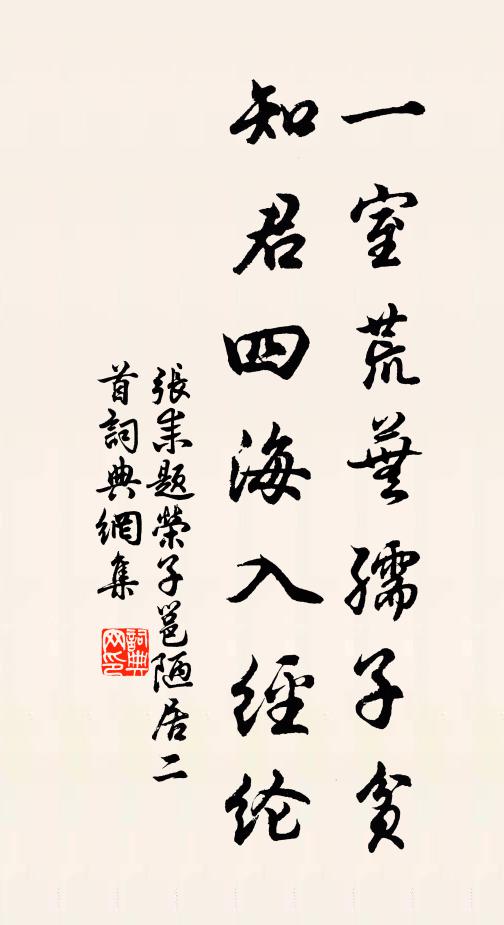 一室荒蕪孺子貧
知君四海入經纶
張耒題榮子邕陋居二
首詞典網集
詞典网印